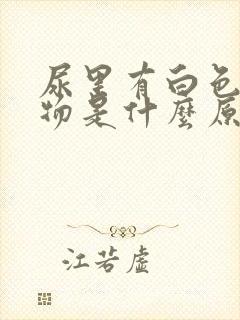 尿里有白色
物是什麼原
江若虚